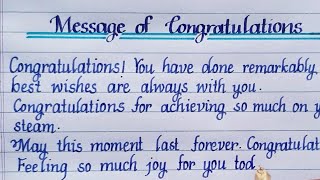 Message of Congratulations
Congratulations! You have done remarkably
best wishes are always with you.
Congratulations for achieving so much on y
steam.
*May this moment last forever. Congratulat
Feeling so much joy for you tod